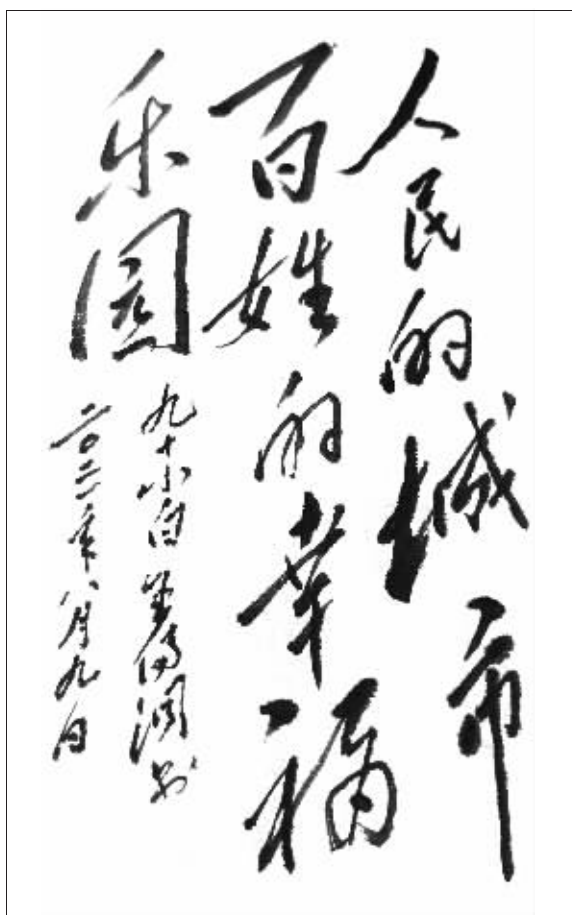 人民的城市
百姓的幸福
乐园
九十小白
二〇二二年八月九日